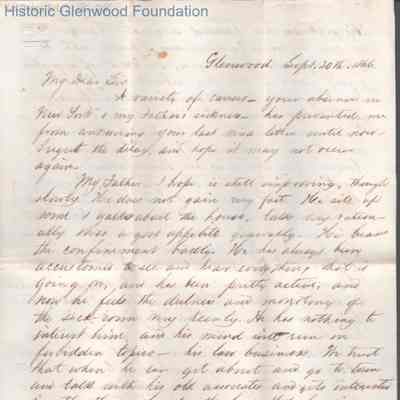 Historic Glenwood Foundation
Glenwood Sept. 20th. 1866
My Dear Sir
A variety of causes - your absence in
New York & my Father's sickness - has prevented me
from answering your last letter until now
I regret the delay, and hope it may not occur
again.
My Father I hope is still improving, though
slowly. He does not gain very fast. He sits up
some & walks about the house, talks very ration-
ally & has a good appetite generally. He bears
the confinement badly. He has always been
accustomed to see and hear everything that is
going on, and has been pretty active, and
now he feels the dulness and monotony of
the sick-room very keenly. He has nothing to
interest him, and his mind will run on
forbidden topics - his law business. We trust
that when he can get about and go to town
and talk with his old associates and gets interested